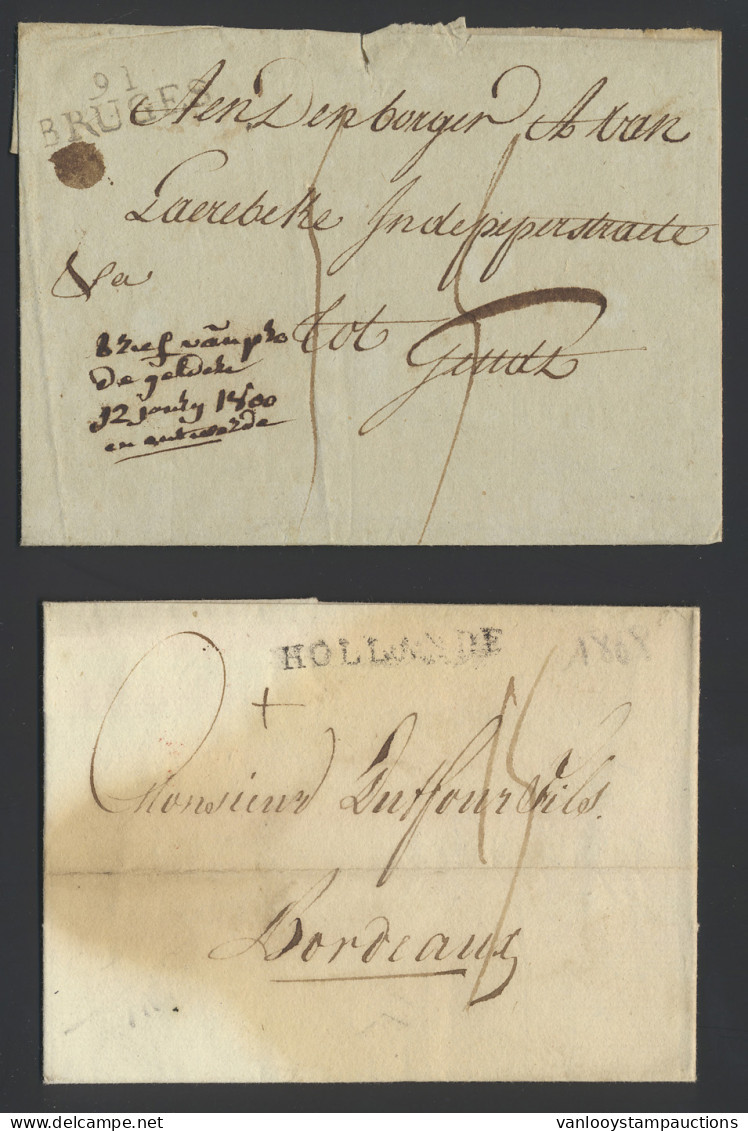 91
BRUGES
Aen Den borger A van
Laerebeke Indepeperstraete
tot
Gendt
Brief van
De geldere
12 1800
en antworde
HOLLANDE
1808
+
Monsieur Duffour Fils.
15
Bordeaux
vanlooystampauctions